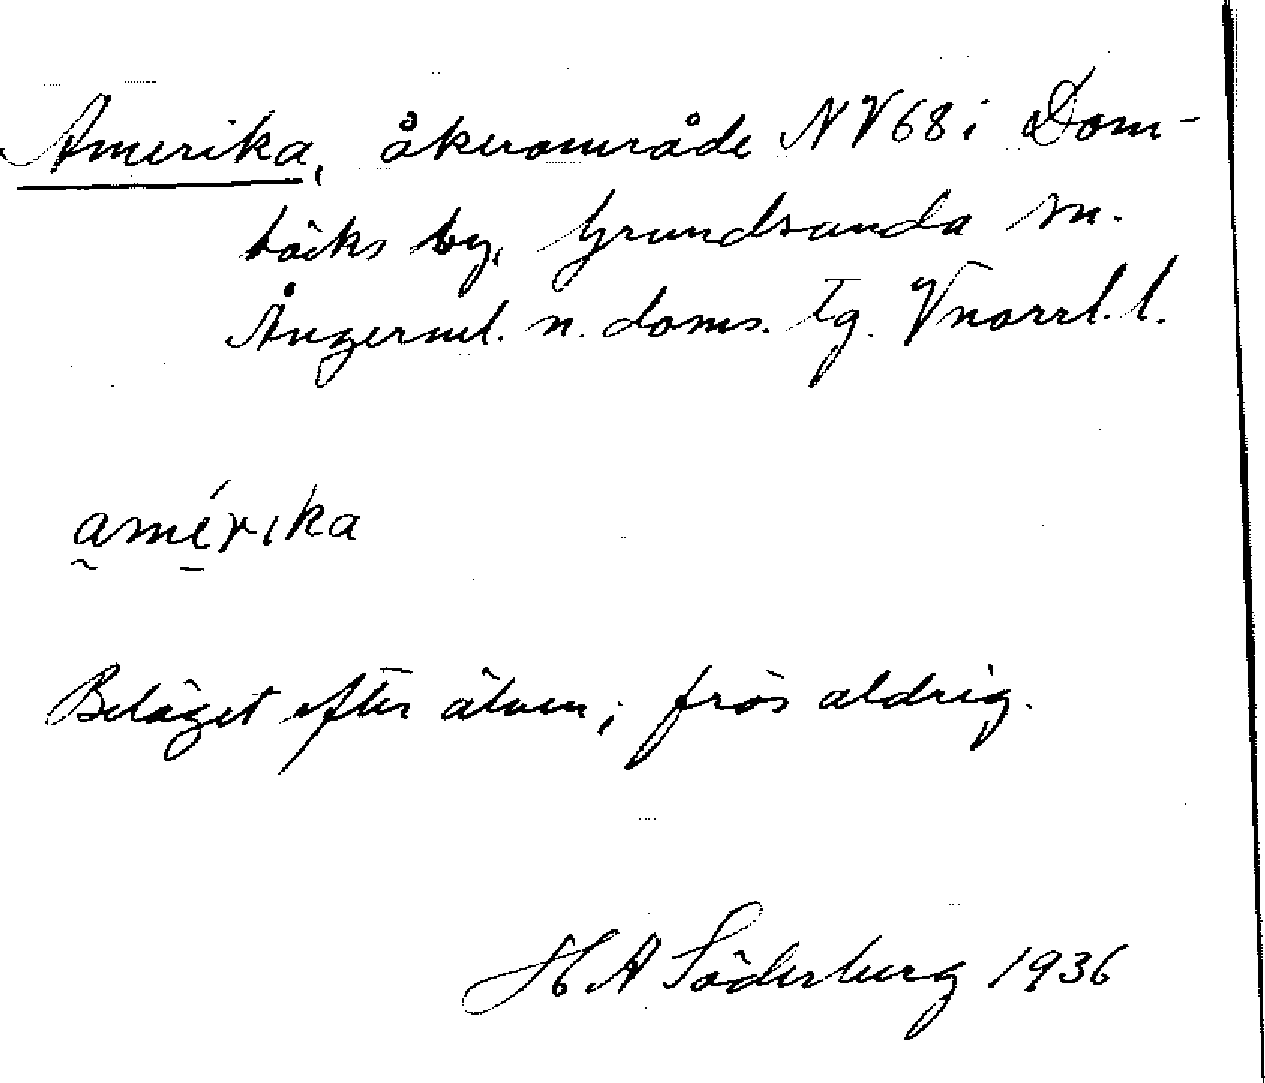 Amerika, åkerområde NV68 i Dom-
bäcks by, Grundsunda sn.
Ångerml. n. doms. tg. Vnorrl. l.
amérika
Beläget efter älven; frös aldrig.
H A Söderberg 1936